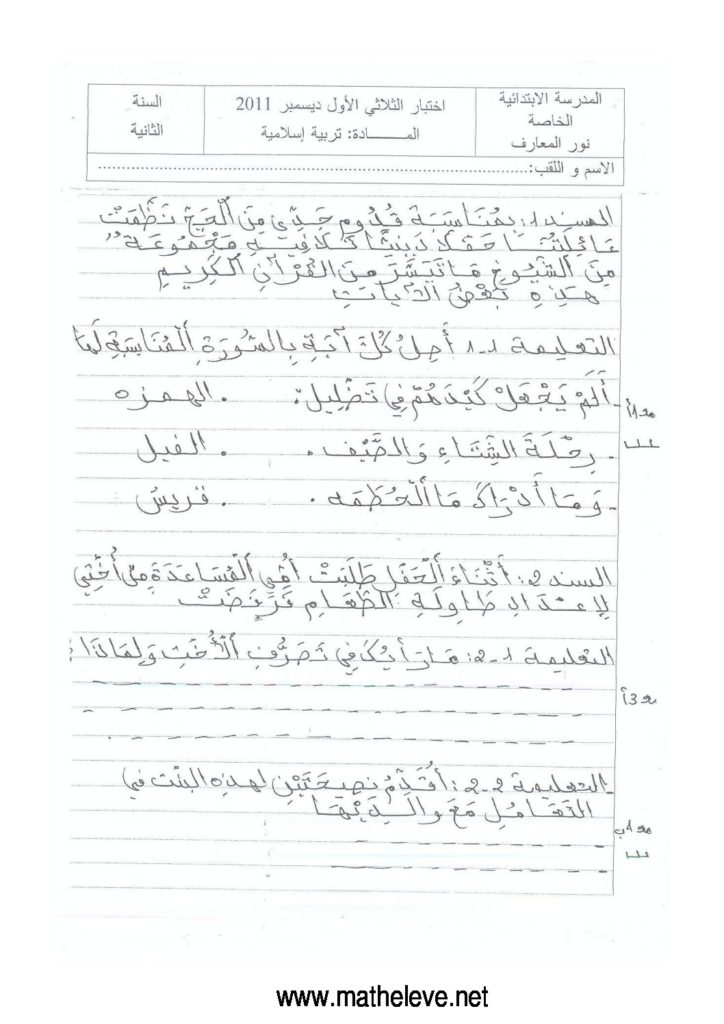 المدرسة الابتدائية
الخاصة
نور المعارف
اختبار الثلاثي الأول ديسمبر 2011
المـــــادة: تربية إسلامية
السنة
الثانية
الاسم و اللقب:
السند 1: بِمُنَاسَبَةِ قُدُومِ جَدِّي مِنَ الْحَجِّ نَظَّمَتْ
عَائِلَتُنَا حَفْلًا دِينِيًّا تَلَا فِيهِ مَجْمُوعَةٌ
مِنَ الشُّيُوخِ مَا تَيَسَّرَ مِنَ القُرْآنِ الْكَرِيمِ
هَذِهِ بَعْضُ الْآيَاتِ
التعليمة 1-1 أَصِلُ كُلَّ آيَةٍ بِالسُّورَةِ الْمُنَاسِبَةِ لَهَا
- أَلَمْ يَجْعَلْ كَيْدَهُمْ فِي تَضْلِيلٍ . . الهمزه
مع1أ
- رِحْلَةَ الشِّتَاءِ وَالصَّيْفِ . . الفيل
- وَمَا أَدْرَاكَ مَا الْحُطَمَه . . قريش
السند 2: أَثْنَاءَ الْحَفْلِ طَلَبَتْ أُمِّي الْمُسَاعَدَةَ مِنْ أُخْتِي
لِإِعْدَادِ طَاوِلَةِ الطَّعَامِ فَرَفَضَتْ
التعليمة 1-2: مَا رَأْيُكَ فِي تَصَرُّفِ الْأُخْتِ وَلِمَاذَا؟
مع3أ
التعليمة 2-2: أُقَدِّمُ نَصِيحَتَيْنِ لهذه البنت في
التَّعَامُلِ مَعَ وَالِدَيْهَا
مع4ب
www.matheleve.net